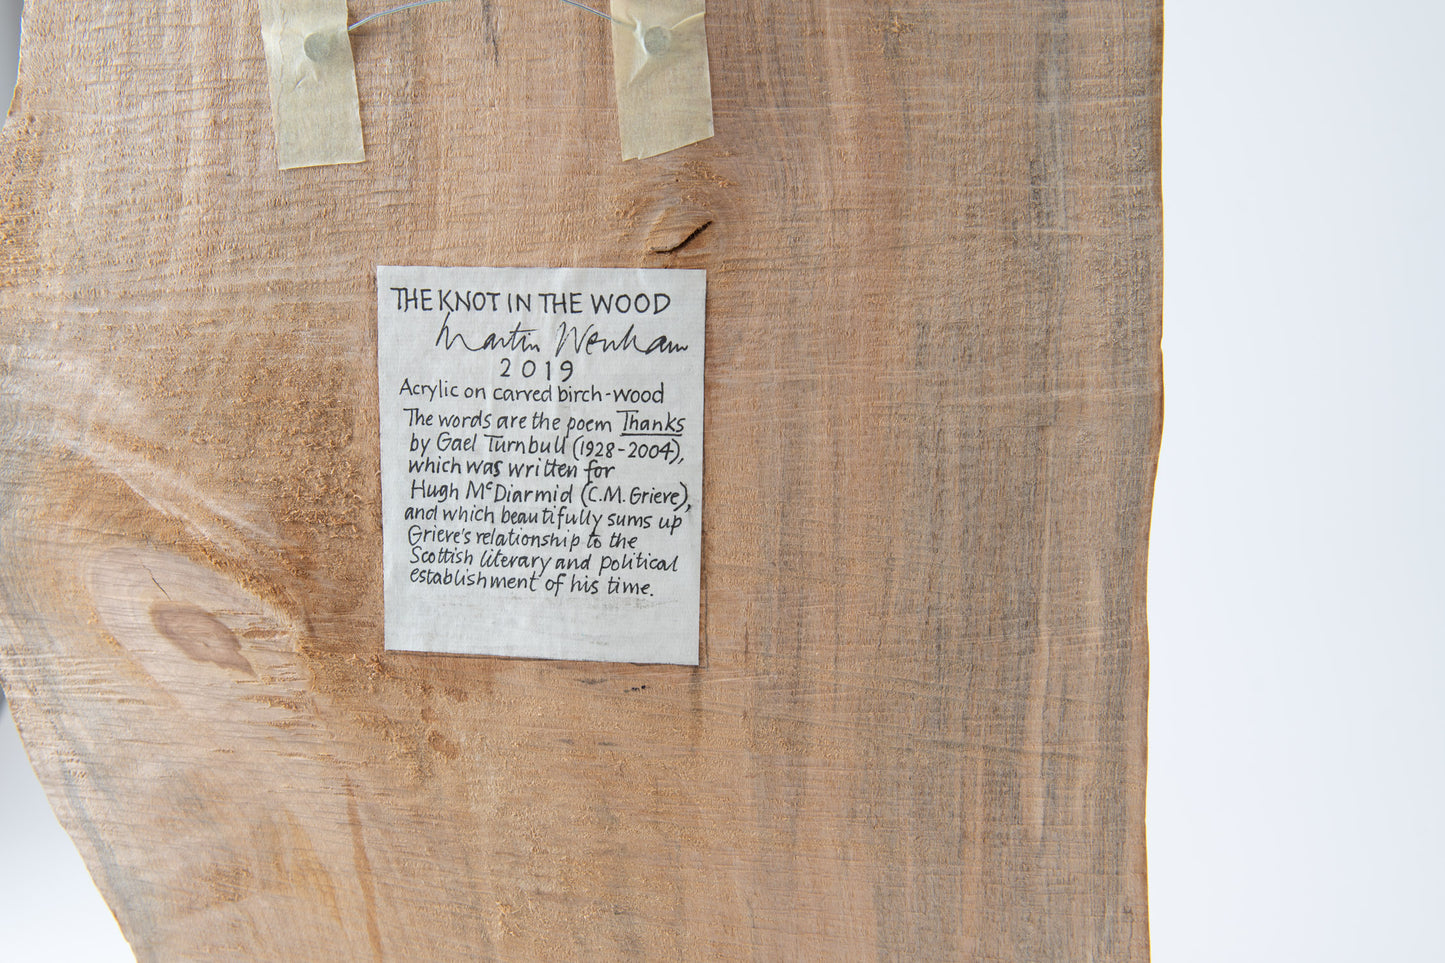 THE KNOT IN THE WOOD
Martin Wenham
2019
Acrylic on carved birch-wood
The words are the poem Thanks
by Gael Turnbull (1928-2004),
which was written for
Hugh McDiarmid (C.M. Grieve),
and which beautifully sums up
Grieve's relationship to the
Scottish literary and political
establishment of his time.